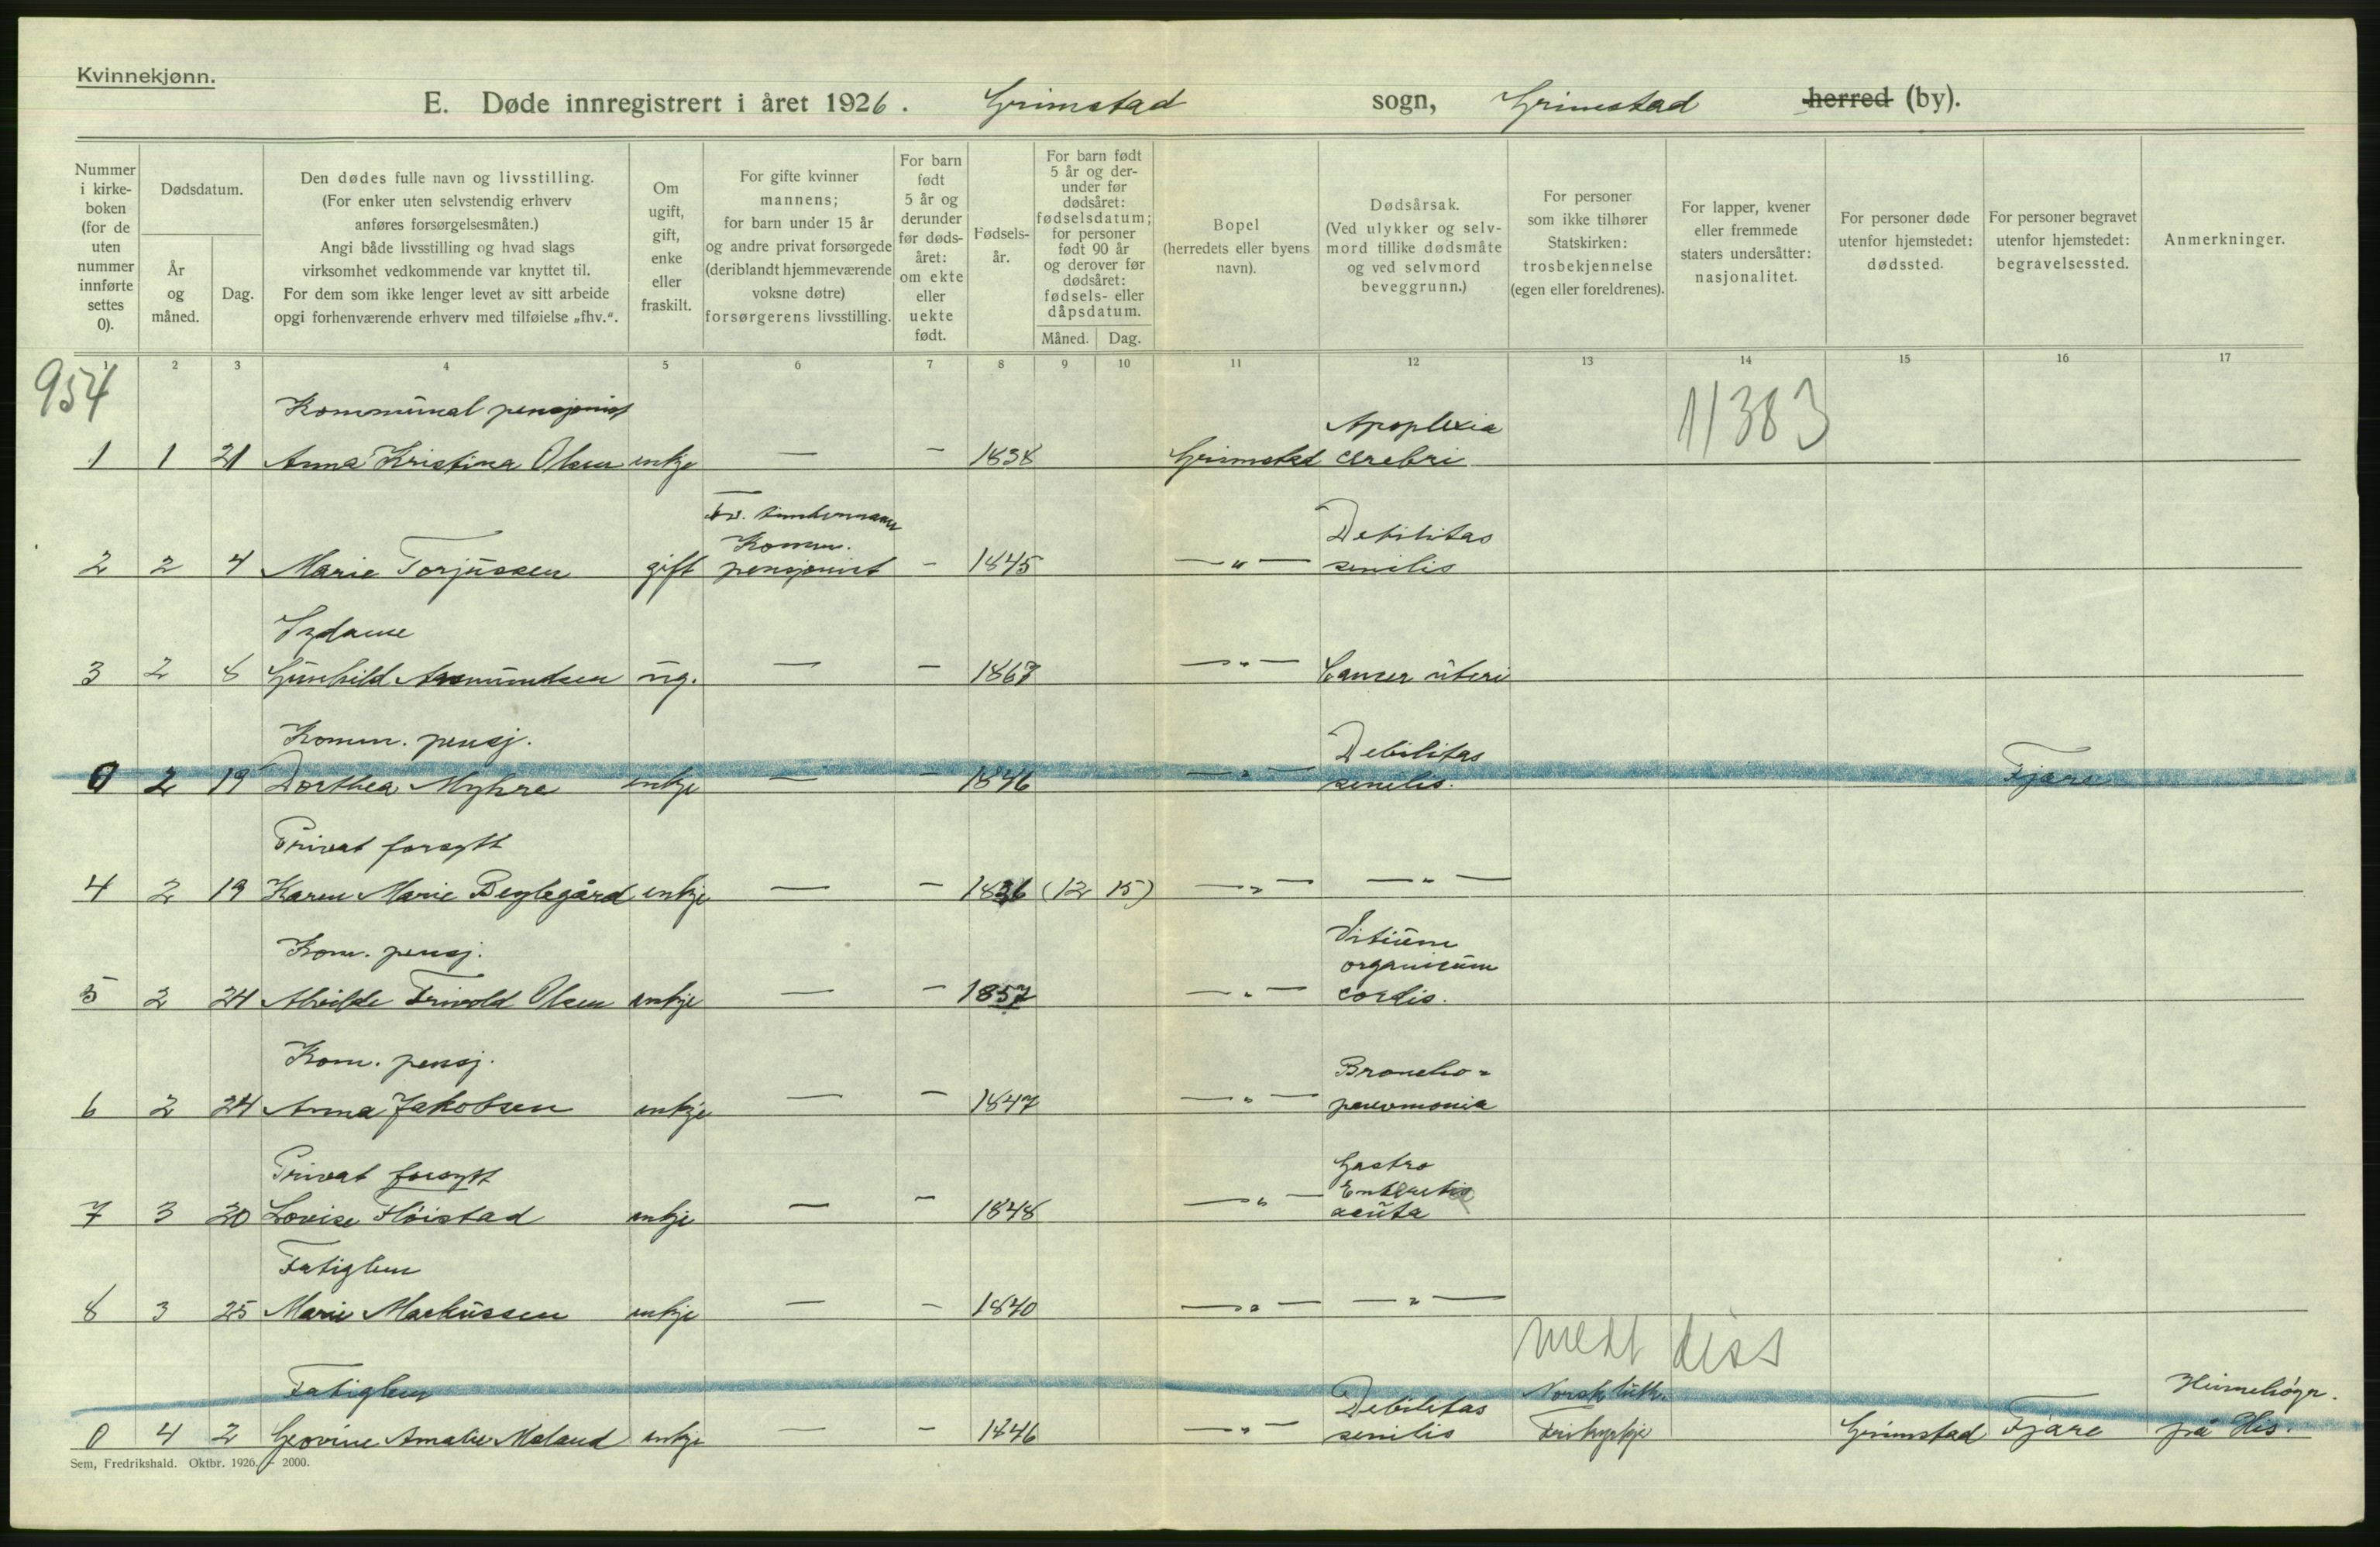 Kvinnekjønn.
E. Døde innregistrert i året 1926. Grimstad sogn, Grimstad herred (by).
Nummer i kirke-boken (for de uten nummer innførte settes 0).
Dødsdatum.
År og måned.
Dag.
Den dødes fulle navn og livsstilling.
(For enker uten selvstendig erhverv
anføres forsørgelsesmåten.)
Angi både livsstilling og hvad slags
virksomhet vedkommende var knyttet til.
For dem som ikke lenger levet av sitt arbeide
opgi forhenværende erhverv med tilføielse „fhv.“.
Om ugift, gift, enke eller fraskilt.
For gifte kvinner
mannens;
for barn under 15 år
og andre privat forsørgede
(deriblandt hjemmeværende
voksne døtre)
forsørgerens livsstilling.
For barn født 5 år og derunder før døds-året: om ekte eller uekte født.
Fødsels-år.
For barn født 5 år og der-under før dødsåret: fødselsdatum; for personer født 90 år og derover før dødsåret: fødsels- eller dåpsdatum.
Måned. Dag.
Bopel
(herredets eller byens
navn).
Dødsårsak.
(Ved ulykker og selv-
mord tillike dødsmåte
og ved selvmord
beveggrunn.)
For personer
som ikke tilhører
Statskirken:
trosbekjennelse
(egen eller foreldrenes).
For lapper, kvener
eller fremmede
staters undersåtter:
nasjonalitet.
For personer døde
utenfor hjemstedet:
dødssted.
For personer begravet
utenfor hjemstedet:
begravelsessted.
Anmerkninger.
1 2 3 4 5 6 7 8 9 10 11 12 13 14 15 16 17
954
11383
Kommunal pensjonist Apoplexia
1 1 21 Anna Kristina Olsen enkje — – 1838 Grimstad cerebri
Komm. Debilitas
2 2 4 Marie Torjussen gift pensjonist – 1845 —„— senilis
3 2 8 Gunhild ug. — – 1867 —„— Cancer uteri
Komm. pensj. Debilitas
0 2 19 Dorthea Myhre enkje — – 1846 —„— senilis. Fjære
Privat forsytt
4 2 19 Karen Marie enkje — – 1836 (12 15) —„— —„—
Kom. pensj. Vitium
organicum
5 2 24 Olsen enkje — – 1857 —„— cordis.
Kom. pensj. Broncho-
6 2 24 Anna Jakobsen enkje — – 1847 —„— pneumonia
Privat forsytt Gastro
7 3 20 Lovise Fløistad enkje — – 1848 —„— acuta
Fatiglem
8 3 25 Marie Markussen enkje — – 1840 —„— —„—
diss
Fatiglem Debilitas Norsk luth.
0 4 2 Amalie enkje — – 1846 —„— senilis Frikyrkje Grimstad Fjære på His.
Sem, Fredrikshald. Oktbr. 1926. – 2000.